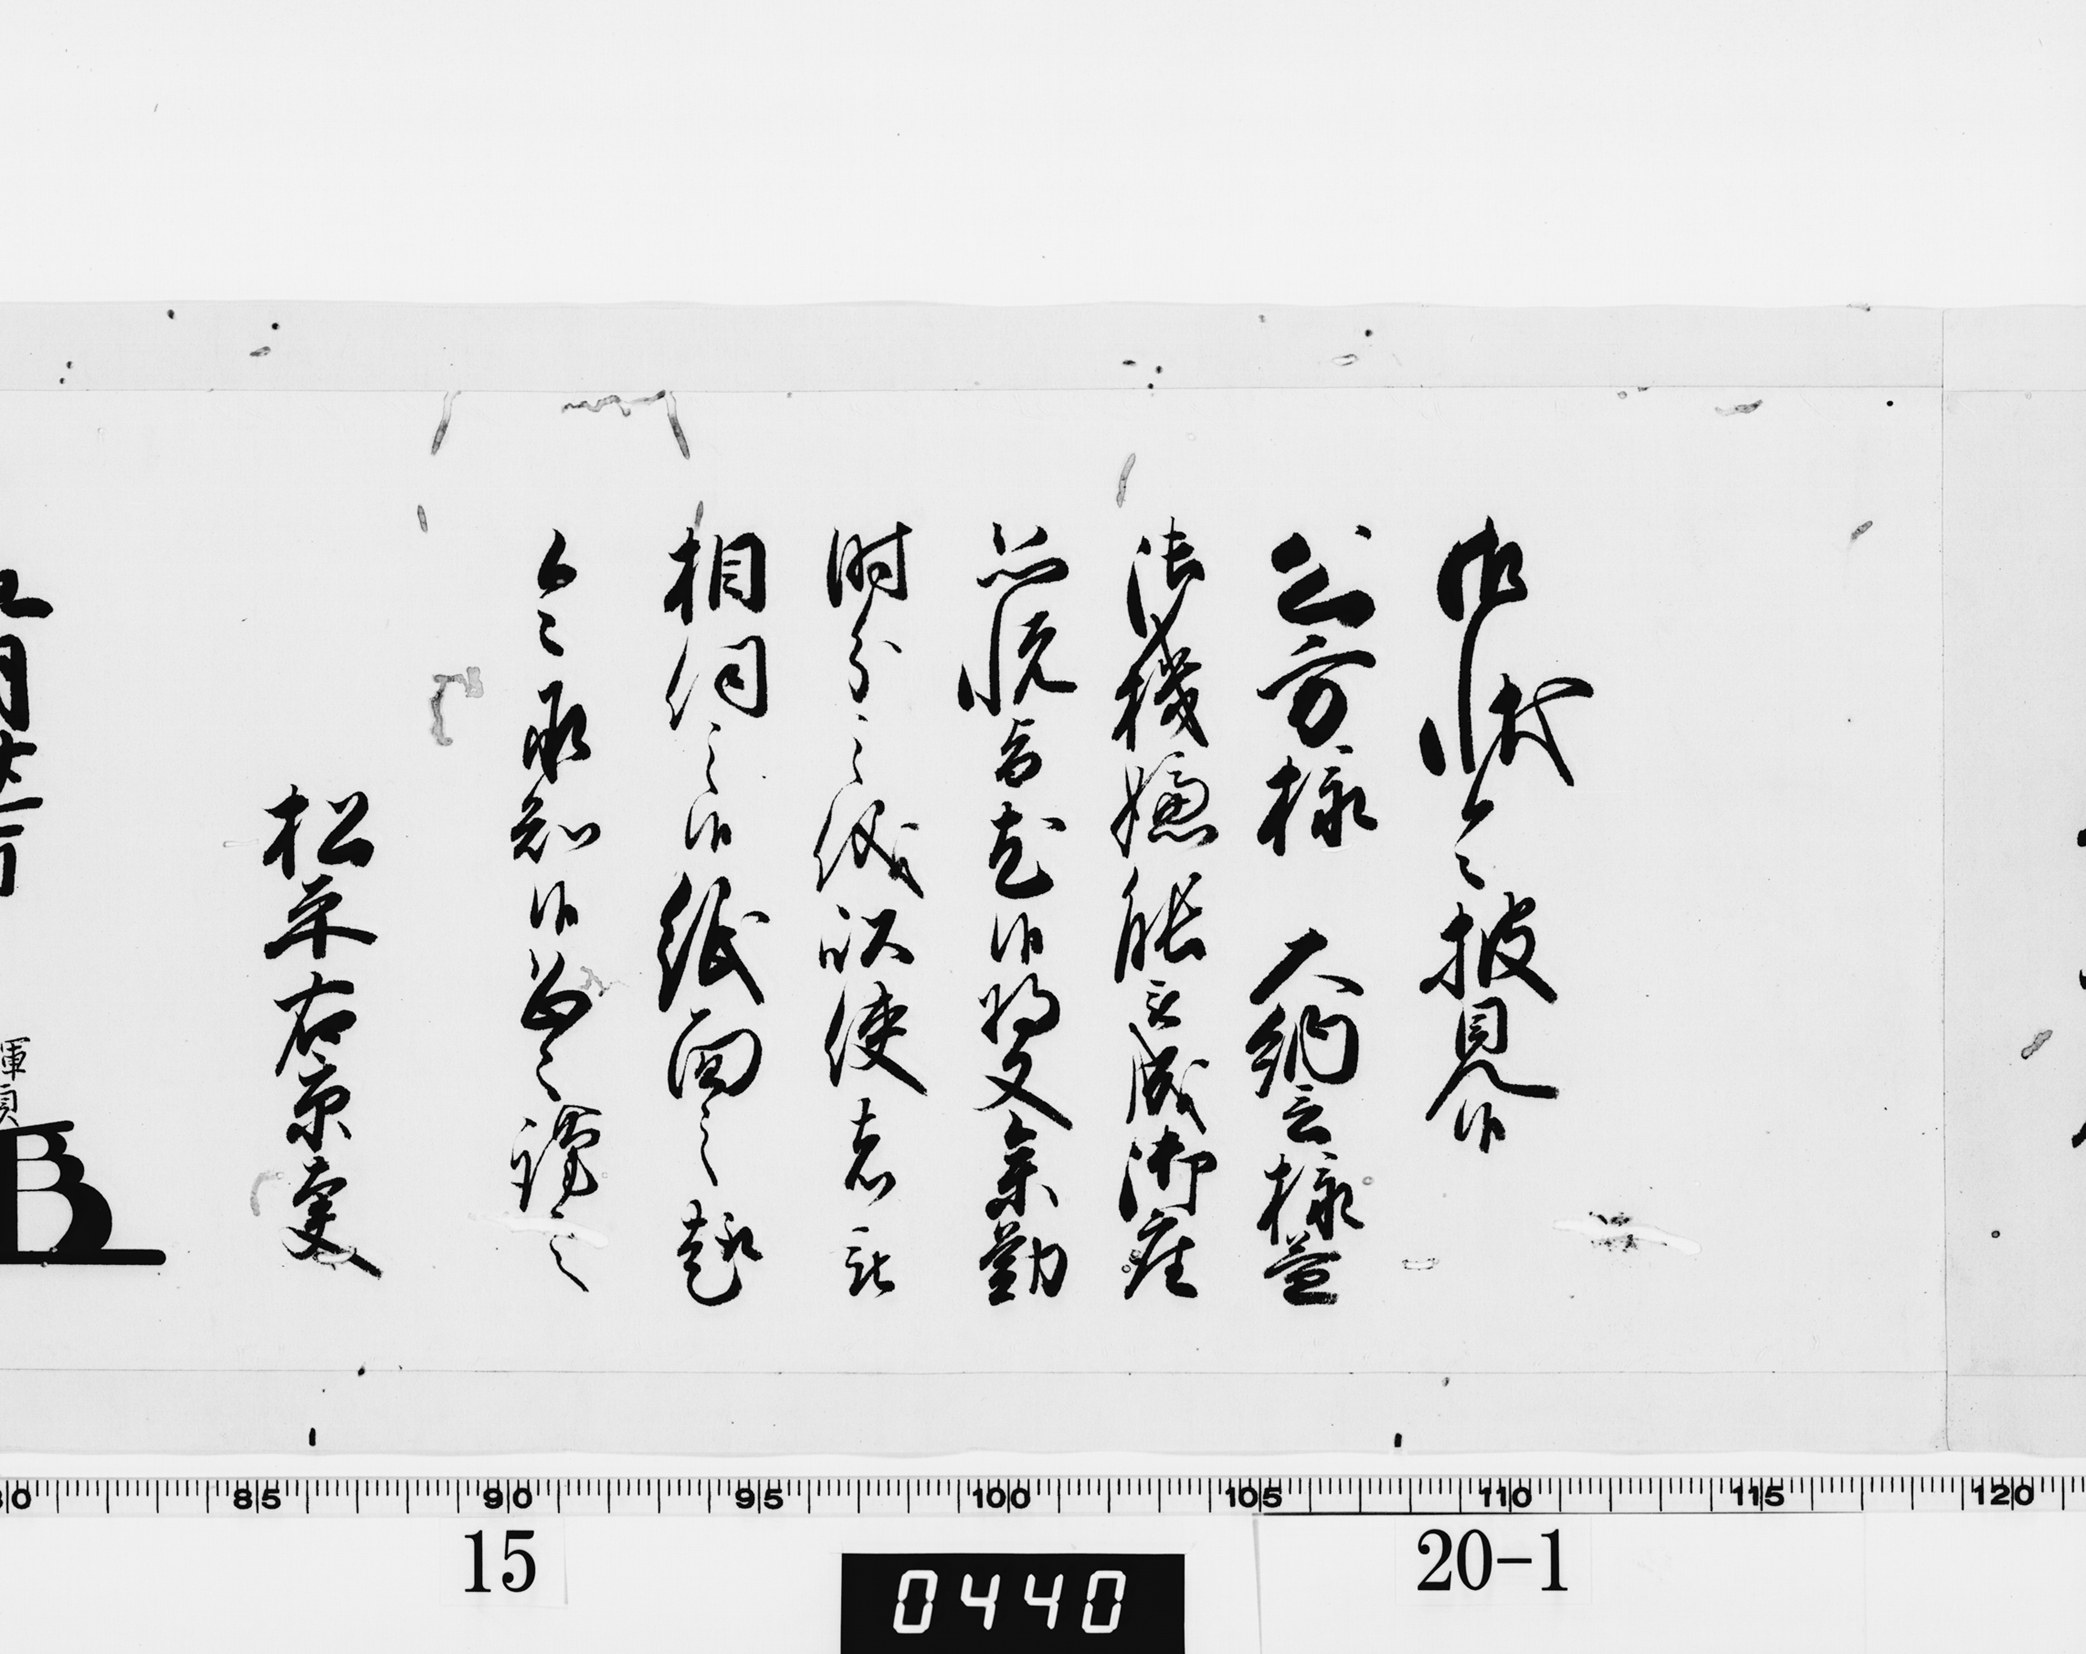 御状令披見候
公方様 大納言様益
御機嫌能被成御座
恐悦旨尤候将又参勤
時分之儀以使者被
相伺之候紙面之趣
令承知候恐々謹言
松平右京大夫
九月廿一日
輝貞
80 85 90 95 100 105 110 115 120
15
0440
20-1